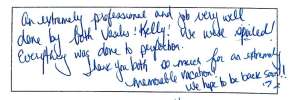 An extremely professional and job very well
done by both Vesks! Kelly! We were spoiled
Everything was done to perfection.
Thank you both so much for an extremely
memorable vacation!
We hope to be back soon!!